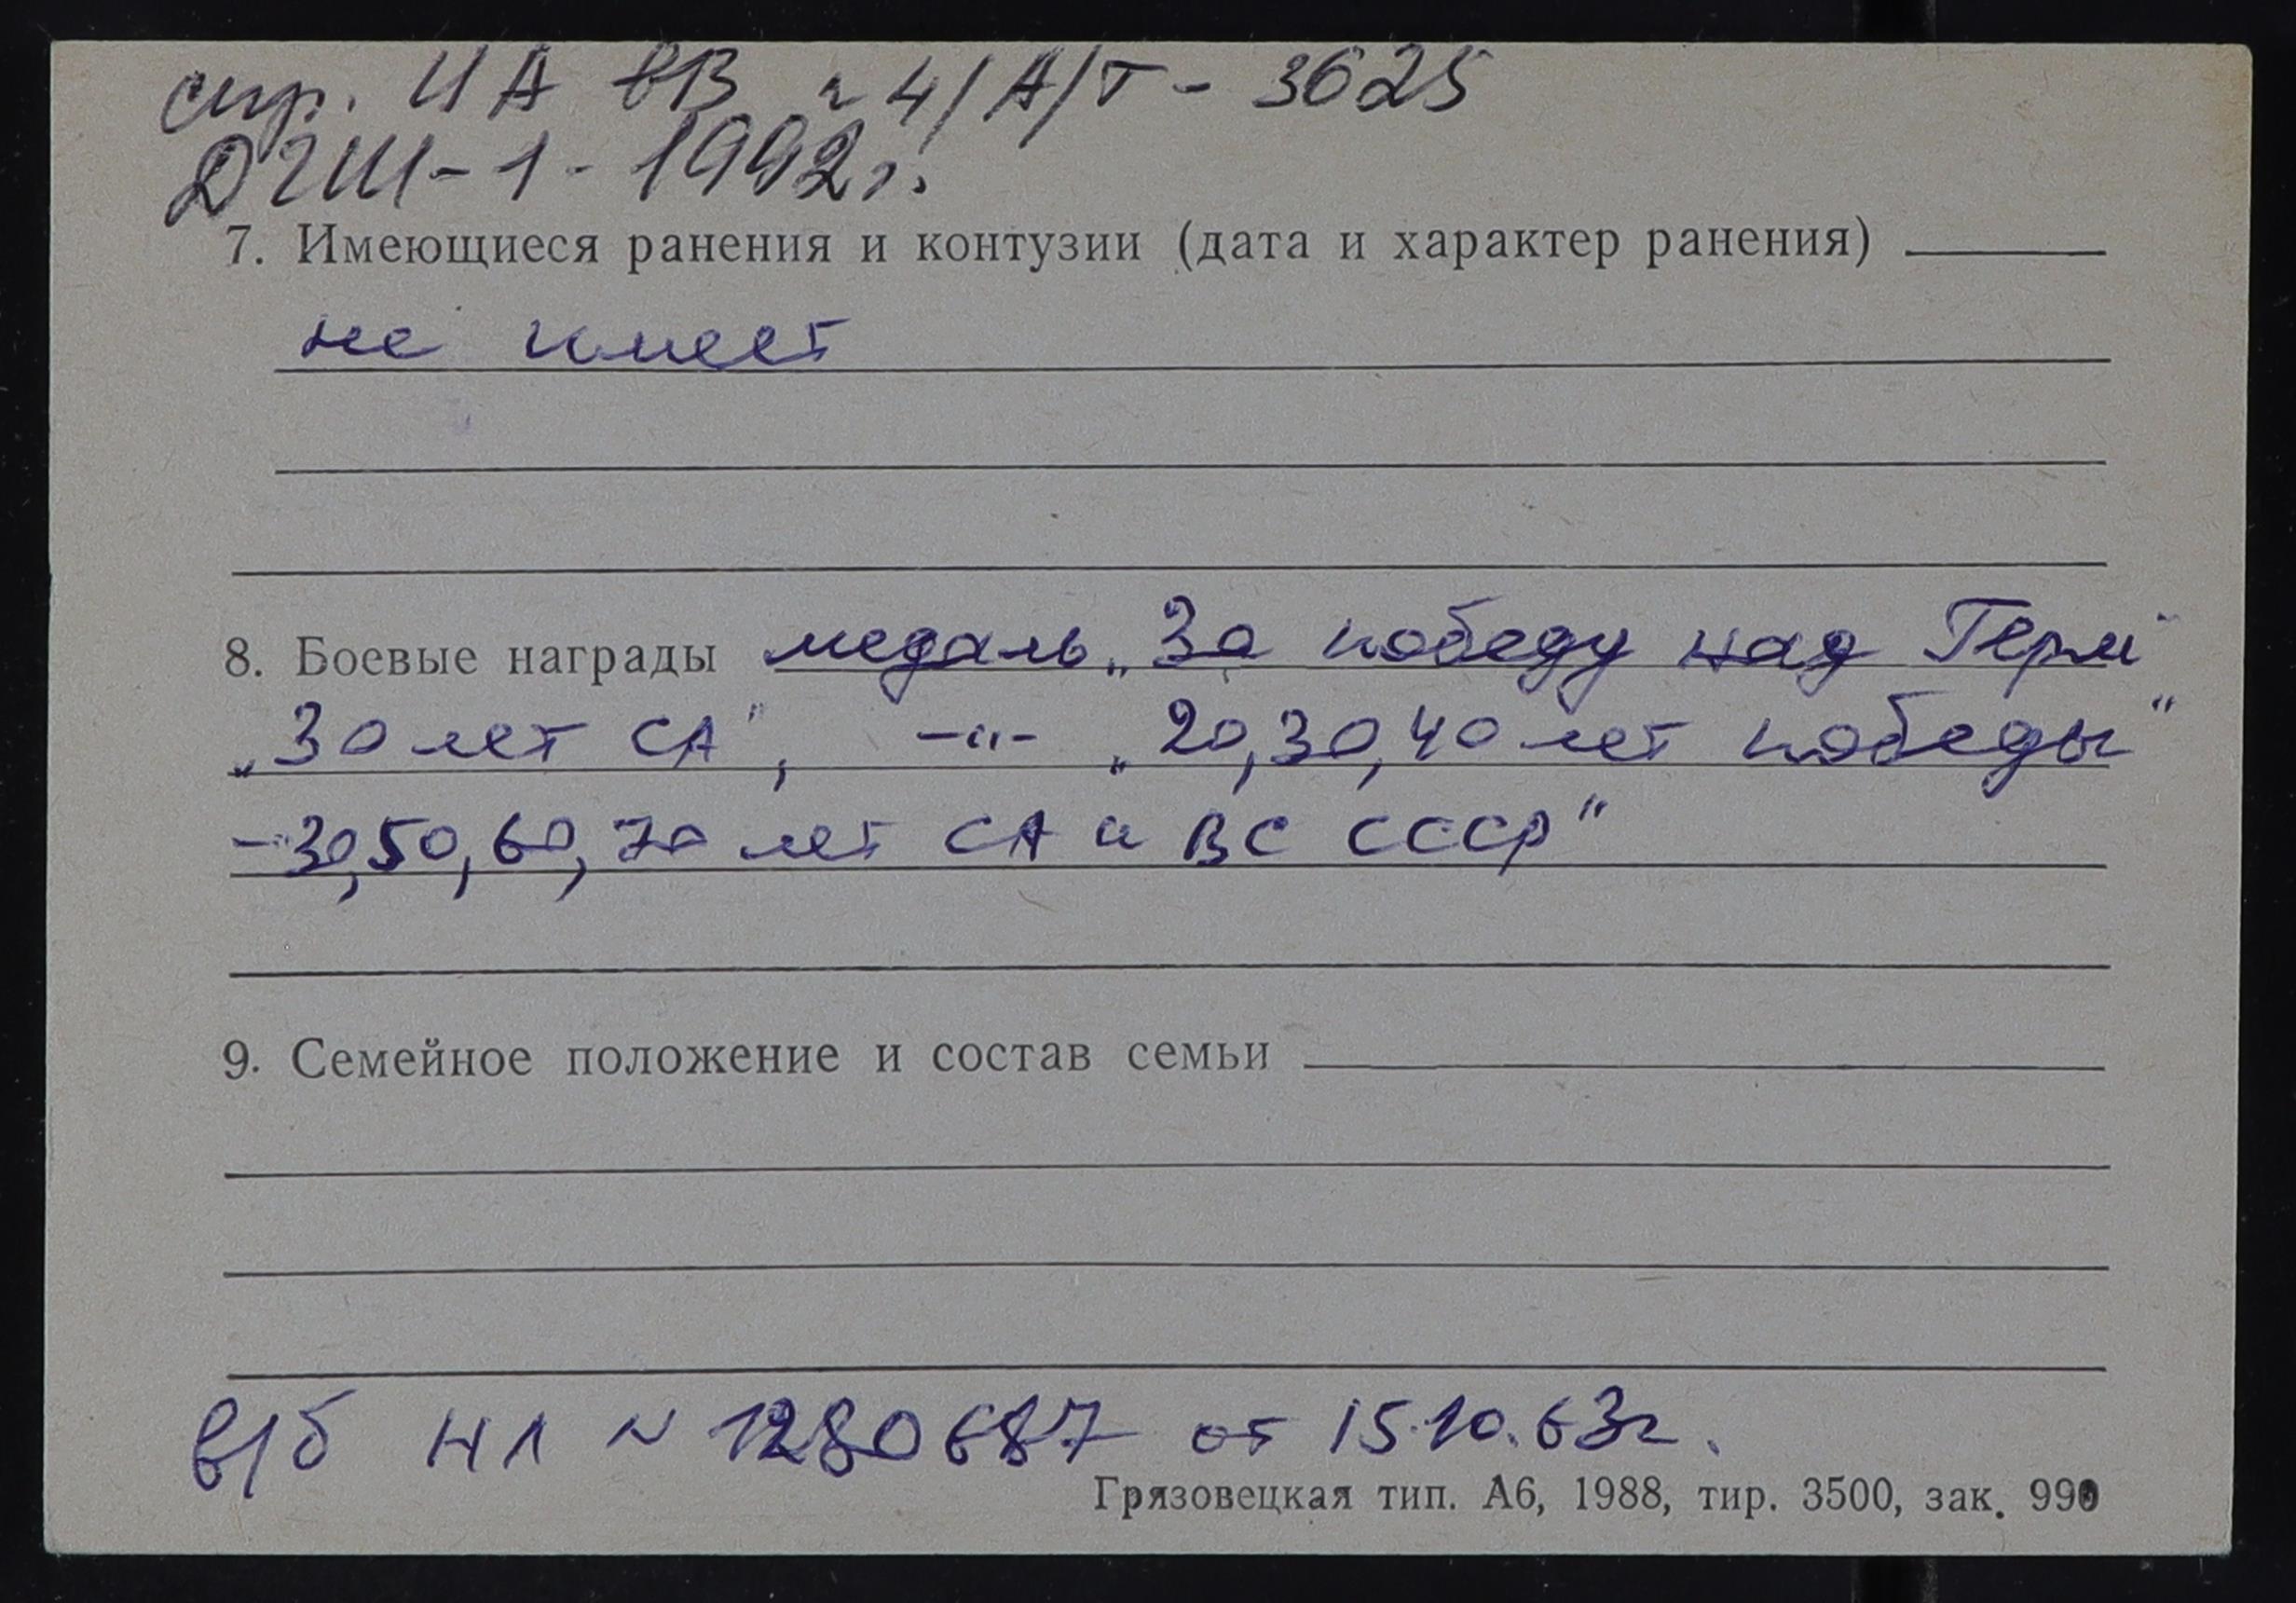 спр. ЦА ВВ № 4/А/Т - 3625
ДГШ-1- 1992г.
7. Имеющиеся ранения и контузии (дата и характер ранения)
не имеет
8. Боевые награды медаль „За победу над Герм"
„30 лет СА", -"- „20,30,40 лет победы"
-30,50,60,70 лет СА и ВС СССР"
9. Семейное положение и состав семьи
в/б НЛ № 1280687 от 15.10.63г.
Грязовецкая тип. А6, 1988, тир. 3500, зак. 990